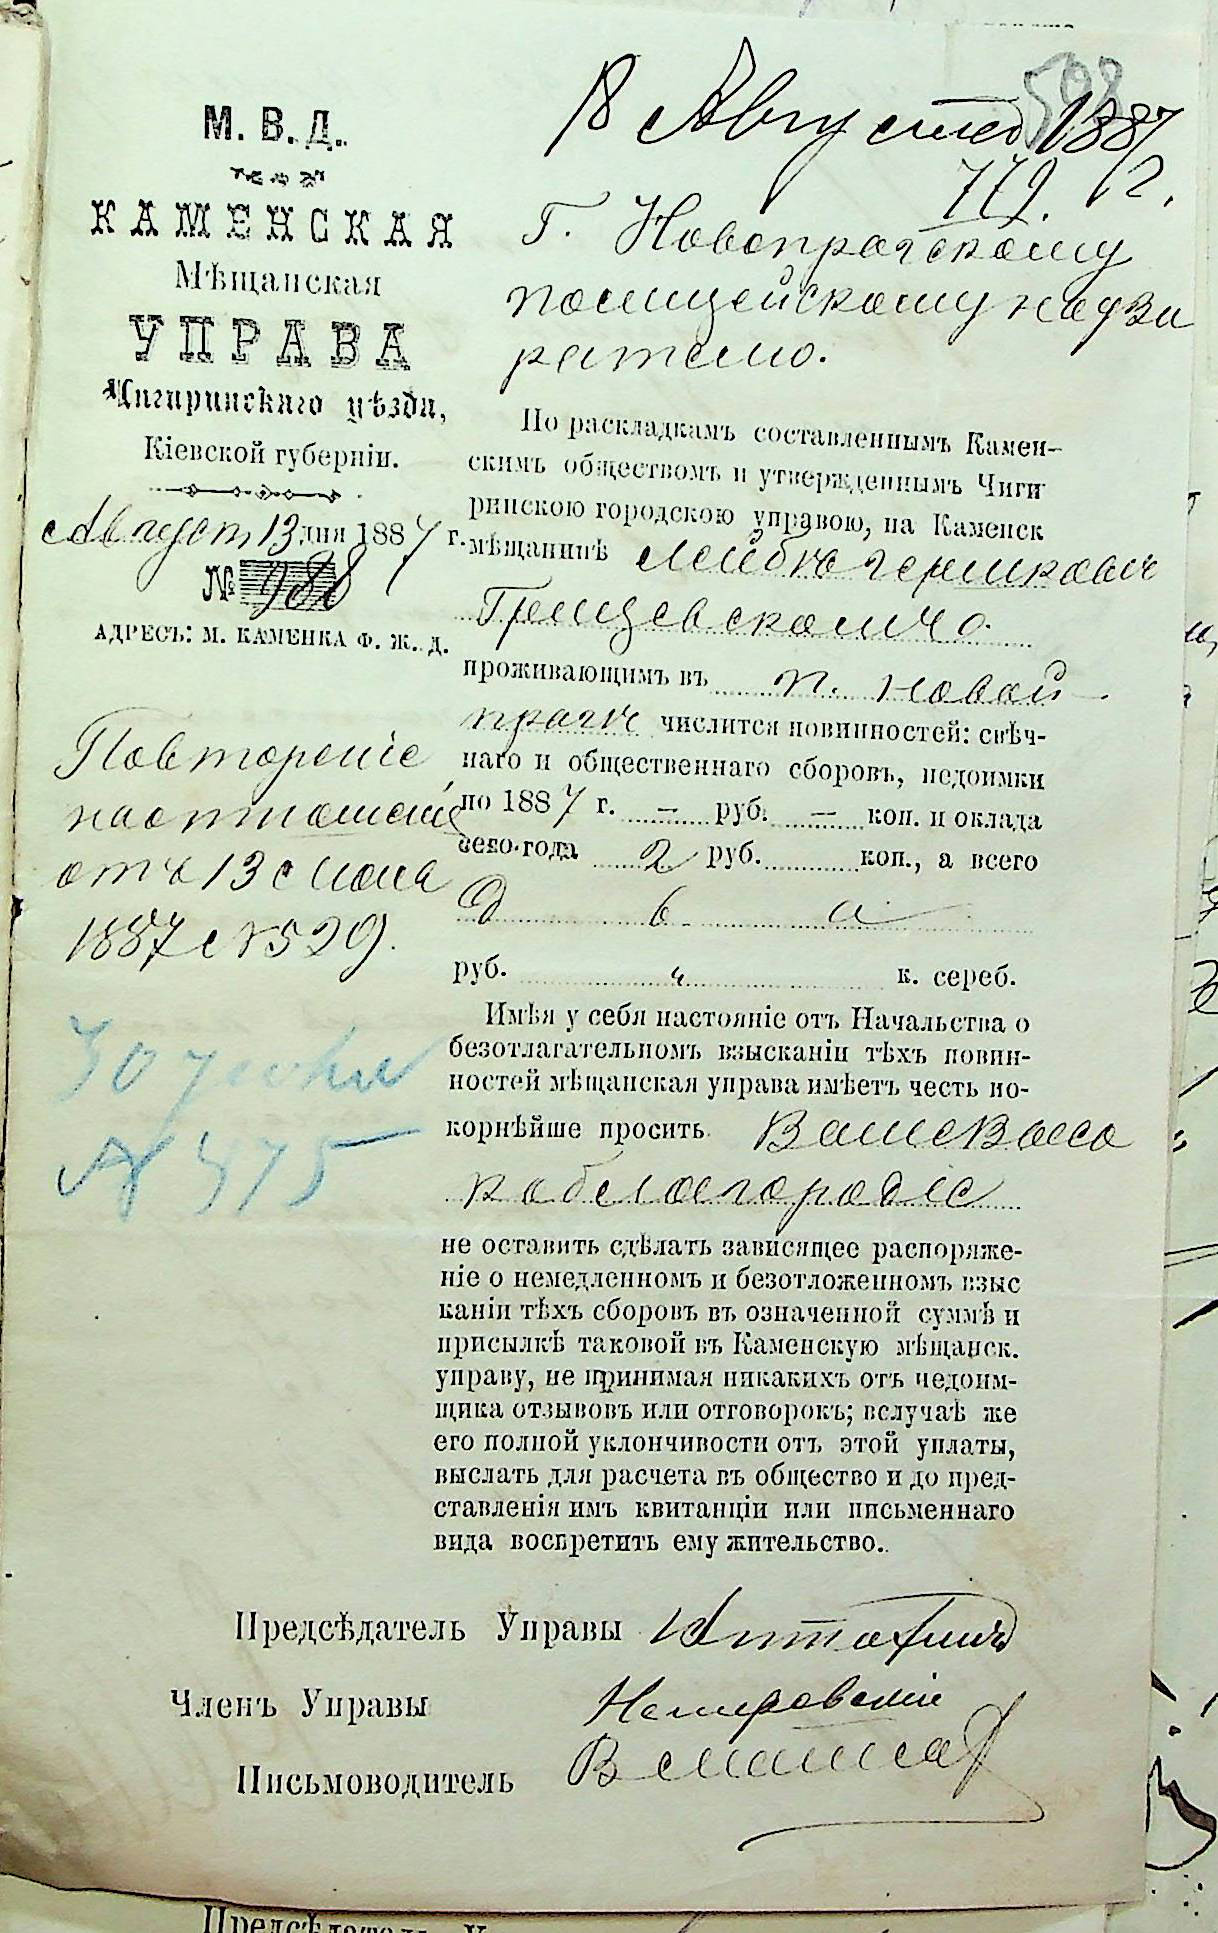 18 Августа 1887
772. г.
598
М. В. Д.
КАМЕНСКАЯ
Мѣщанская
УПРАВА
Чигиринскаго уѣзда,
Кіевской губерніи.
Август 13 дня 1887 г.
№ 980
АДРЕСЪ: М. КАМЕНКА Ф. Ж. Д.
Повтореніе
на отношеніе
отъ 13 Июня
1887 № 529.
30 Июня
№ 475
Г. Новопражскому
полицейскому надзи
рателю.
По раскладкамъ составленнымъ Камен-
скимъ обществомъ и утвержденнымъ Чиги
ринскою городскою управою, на Каменск
мѣщанинѣ Лейбѣ Гершкович
проживающимъ въ п. Новой
Прагѣ числится повинностей: свѣч-
наго и общественнаго сборовъ, недоимки
по 1887 г. — руб. — коп. и оклада
сего года 2 руб. коп., а всего
Два
руб. „ к. сереб.
Имѣя у себя настояніе отъ Начальства о
безотлагательномъ взысканіи тѣхъ повин-
ностей мѣщанская управа имѣетъ честь по-
корнѣйше просить Ваше Высо
коблагородіе
не оставить сдѣлать зависящее распоряже-
ніе о немедленномъ и безотложенномъ взыс
каніи тѣхъ сборовъ въ означенной суммѣ и
присылкѣ таковой въ Каменскую мѣщанск.
управу, не принимая никакихъ отъ недоим-
щика отзывовъ или отговорокъ; вслучаѣ же
его полной уклончивости отъ этой уплаты,
выслать для расчета въ общество и до пред-
ставленія имъ квитанціи или письменнаго
вида воспретить ему жительство.
Предсѣдатель Управы
Членъ Управы
Письмоводитель